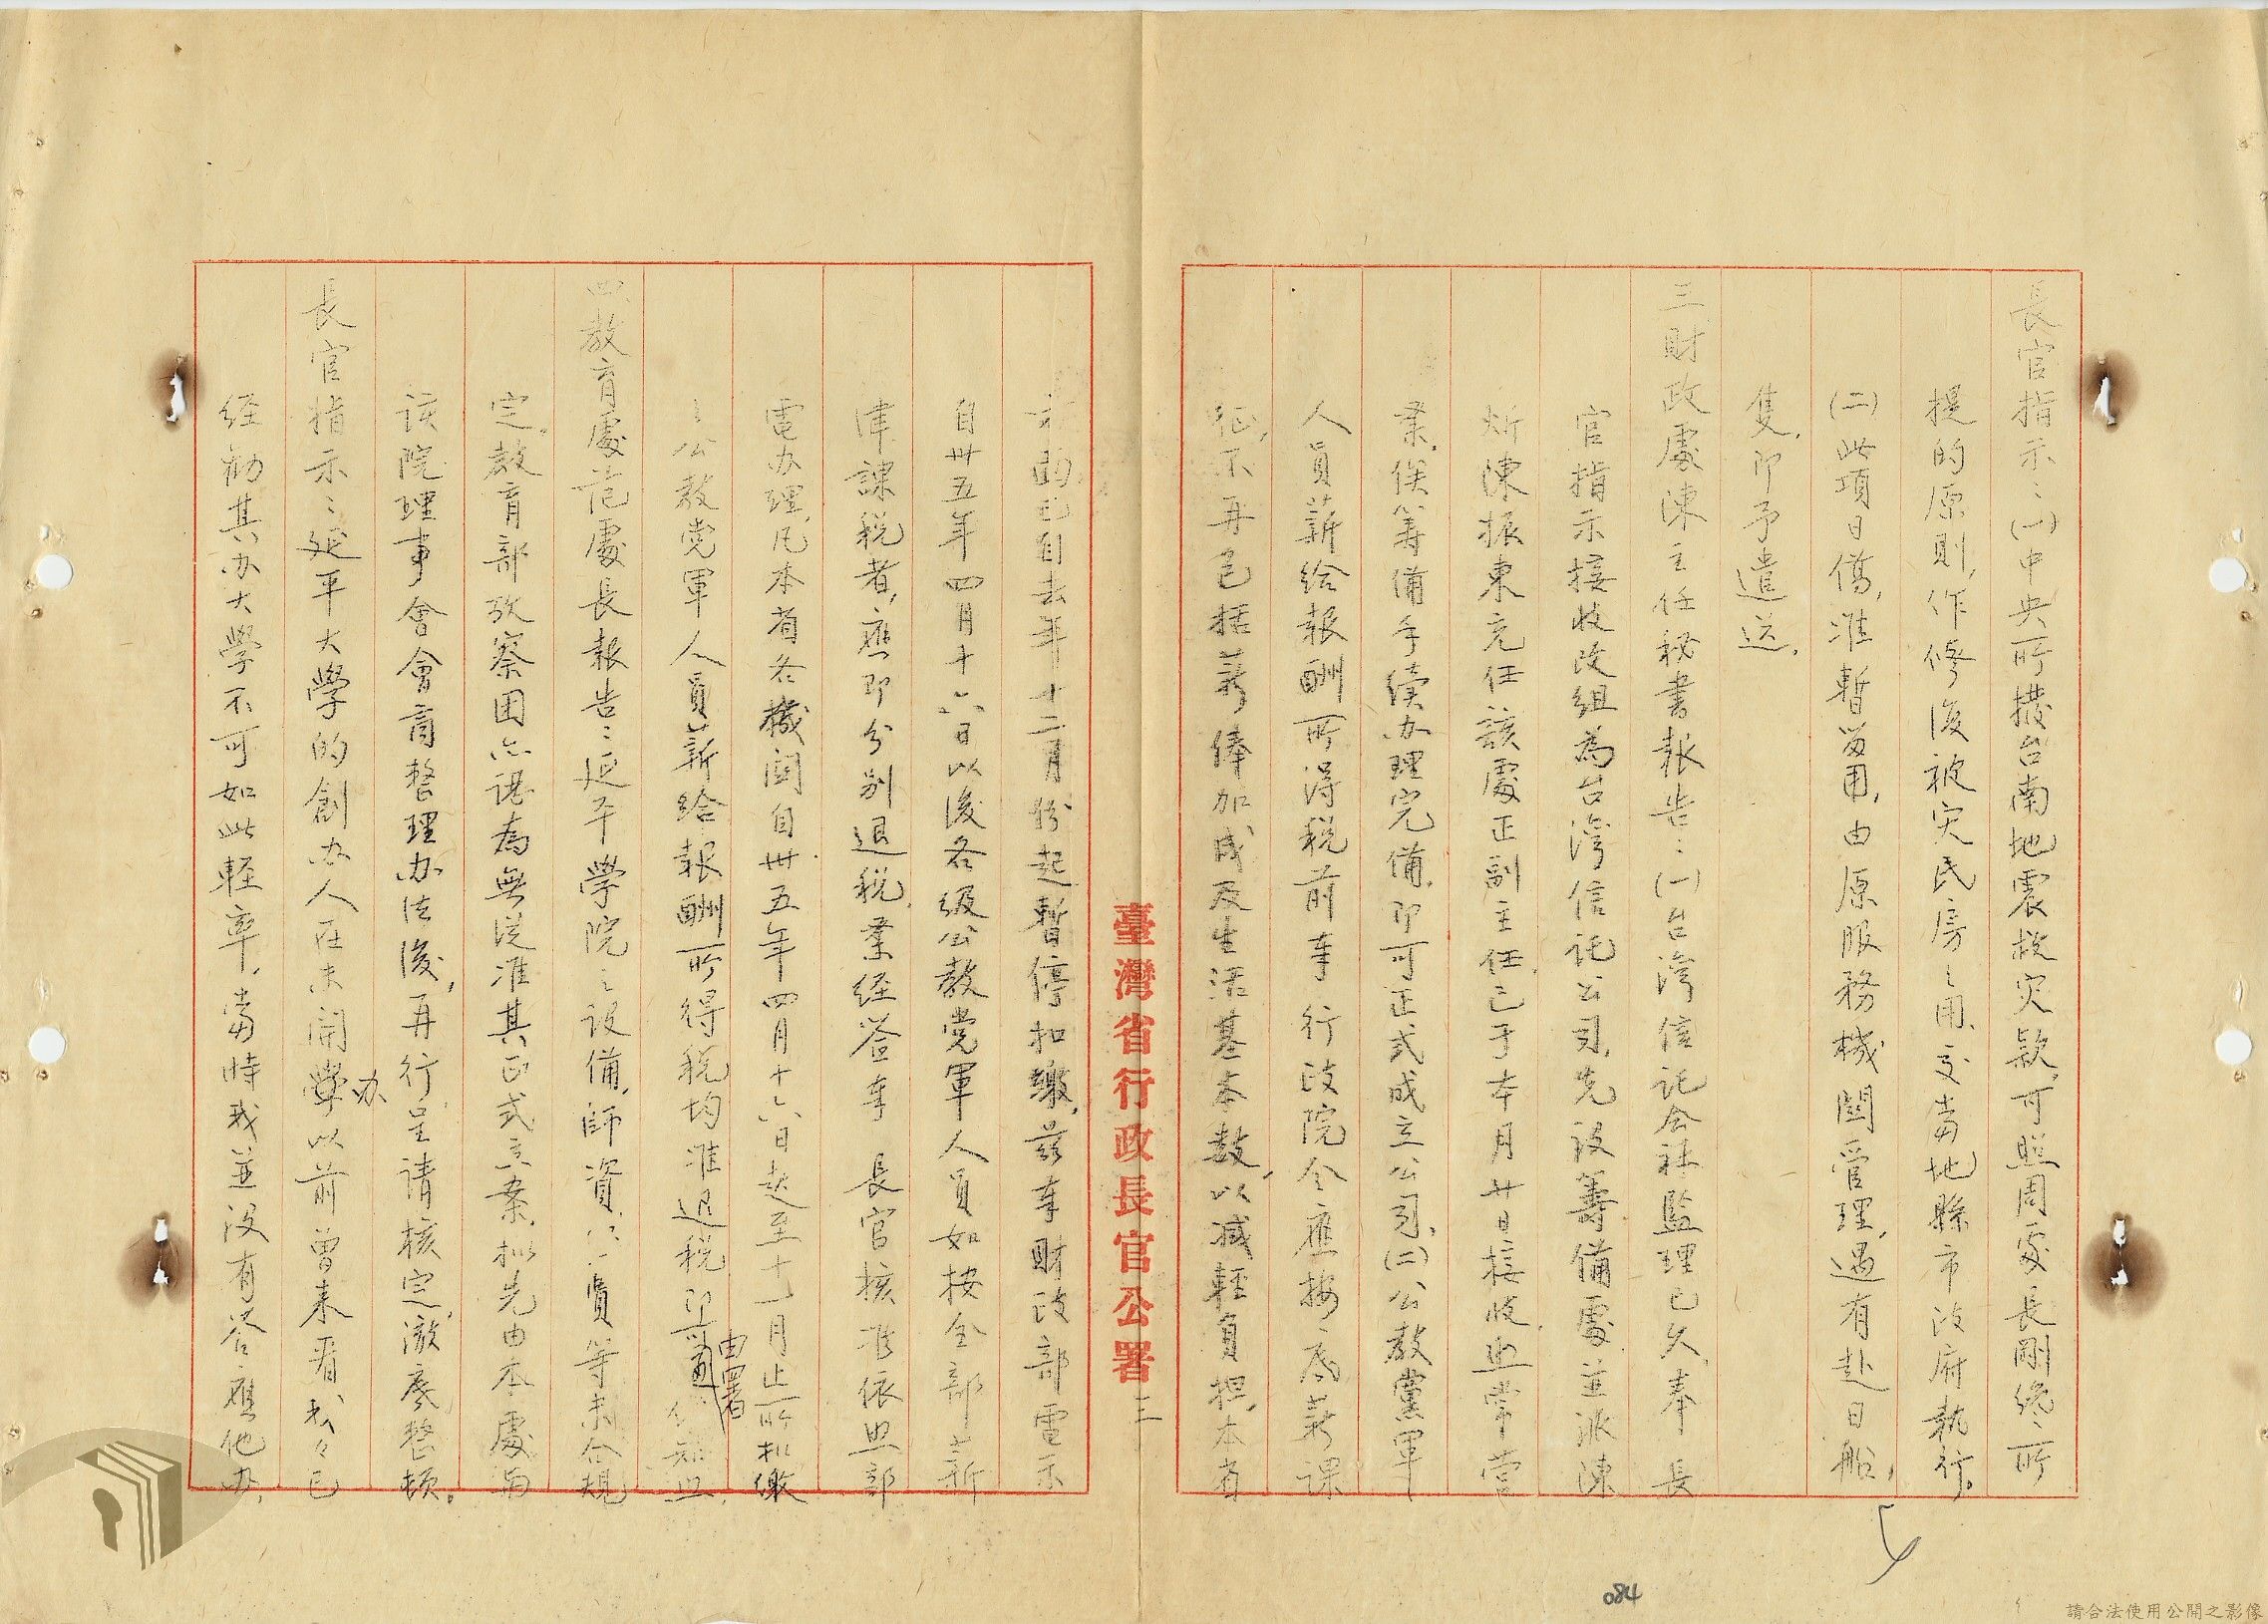 長官指示：(一)中央所撥台南地震救灾款，可照周處長剛纔所
提的原則，作修復被灾民房之用，交當地縣市政府執行。
(二)此項日僑，准暫留用，由原服務機関管理，遇有赴日船，
隻，即予遣送。
三財政處陳主任秘書報告：(一)台湾信託会社監理已久，奉 長
官指示接收改組為台湾信託公司，先設籌備處並派陳
炘陳振東充任該處正副主任，已于本月廿日接收，照常營
業，俟籌備手續办理完備，即可正式成立公司，(二)公教黨軍
人員薪給報酬所得税前奉 行政院令應按底薪課
征，不再包括薪俸加成及生活基本数，以减輕負担，本省
亦自去年十二月份起暫停扣繳，兹奉財政部電示
自卅五年四月十六日以後各級公教党軍人員如按全部薪
津課税者，應即分别退税，業経簽奉 長官核准依照部
電办理，凡本省各機関自卅五年四月十六日起至十一月止所扣繳
之公教党軍人員薪給報酬所得税均准退税，即由署通知照，
四教育處范處長報告：延平學院之設備，師資，等未合規
定，教育部攷察団亦認為無從准其正式立案，拟先由本處與
該院理事會會商整理办法後，再行呈请核定，澈底整頓。
長官指示：延平大學的創办人在未開办學以前曾来看我，我已
経勸其办大學不可如此輕率，當時我並没有答應他办，
臺灣省行政長官公署
三
084
請合法使用公開之影像